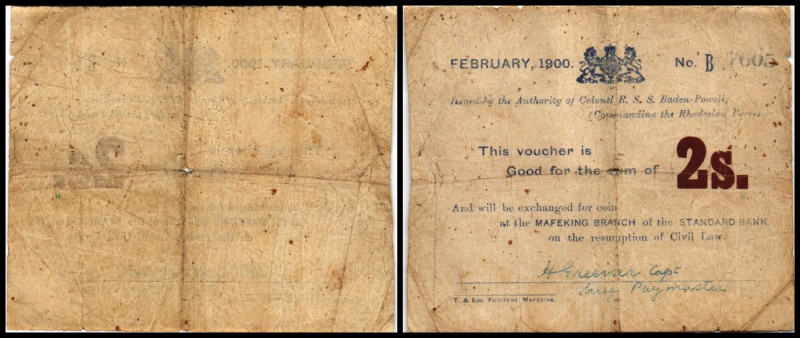 FEBRUARY, 1900. No. B 7605
Issued by the Authority of Colonel R. S. S. Baden-Powell,
(Commanding the Rhodesian Forces
This voucher is
Good for the sum of 2s.
And will be exchanged for coin
at the MAFEKING BRANCH of the STANDARD BANK
on the resumption of Civil Law.
H Greener Capt
Paymaster
T. & Son Printers Mafeking.